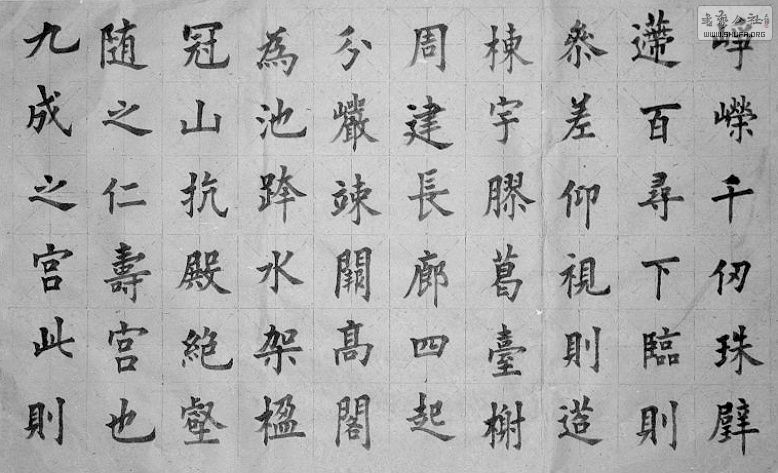 九成之宫此則
随之仁壽宫也
冠山抗殿絶壑
為池跨水架楹
分巖竦闕高閣
周建長廊四起
棟宇膠葛臺榭
叅差仰視則迢
遰百尋下臨則
崢嶸千仞珠璧
書藝公社
WWW.SHUFA.ORG